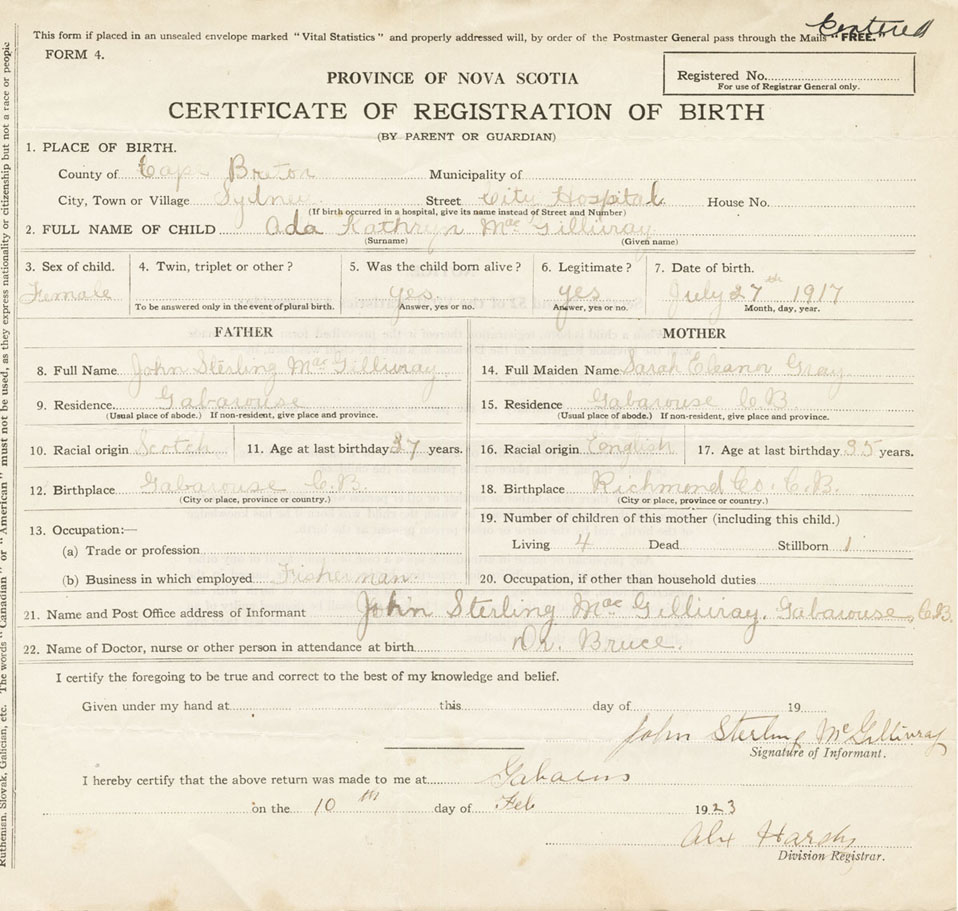 This form if placed in an unsealed envelope marked "Vital Statistics" and properly addressed will, by order of the Postmaster General pass through the Mails "FREE."
FORM 4.
PROVINCE OF NOVA SCOTIA
Registered No.
For use of Registrar General only.
CERTIFICATE OF REGISTRATION OF BIRTH
(BY PARENT OR GUARDIAN)
1. PLACE OF BIRTH.
County of Cape Breton Municipality of
City, Town or Village Sydney Street City Hospital House No.
(If birth occurred in a hospital, give its name instead of Street and Number)
2. FULL NAME OF CHILD Ada Kathryn Mac Gillivray
(Surname) (Given name)
3. Sex of child. 4. Twin, triplet or other? 5. Was the child born alive? 6. Legitimate? 7. Date of birth.
Female yes yes July 27th 1917
To be answered only in the event of plural birth. Answer, yes or no. Answer, yes or no. Month, day, year.
FATHER MOTHER
8. Full Name John Sterling Mac Gillivray 14. Full Maiden Name Sarah Eleanor Gray
9. Residence Gabarouse 15. Residence Gabarouse C.B.
(Usual place of abode.) If non-resident, give place and province. (Usual place of abode.) If non-resident, give place and province.
10. Racial origin Scotch 11. Age at last birthday 37 years. 16. Racial origin English 17. Age at last birthday 35 years.
12. Birthplace Gabarouse C.B. 18. Birthplace Richmond Co. C.B.
(City or place, province or country.) (City or place, province or country.)
13. Occupation:— 19. Number of children of this mother (including this child.)
(a) Trade or profession Living 4 Dead Stillborn 1
(b) Business in which employed Fisherman 20. Occupation, if other than household duties
21. Name and Post Office address of Informant John Sterling Mac Gillivray, Gabarouse, C.B.
22. Name of Doctor, nurse or other person in attendance at birth Dr. Bruce.
I certify the foregoing to be true and correct to the best of my knowledge and belief.
Given under my hand at this day of 19
John Sterling McGillivray
Signature of Informant.
I hereby certify that the above return was made to me at Gabarus
on the 10th day of Feb 1923
Alex
Division Registrar.
Ruthenian, Slovak, Galician, etc. The words "Canadian" or "American" must not be used, as they express nationality or citizenship but not a race or people